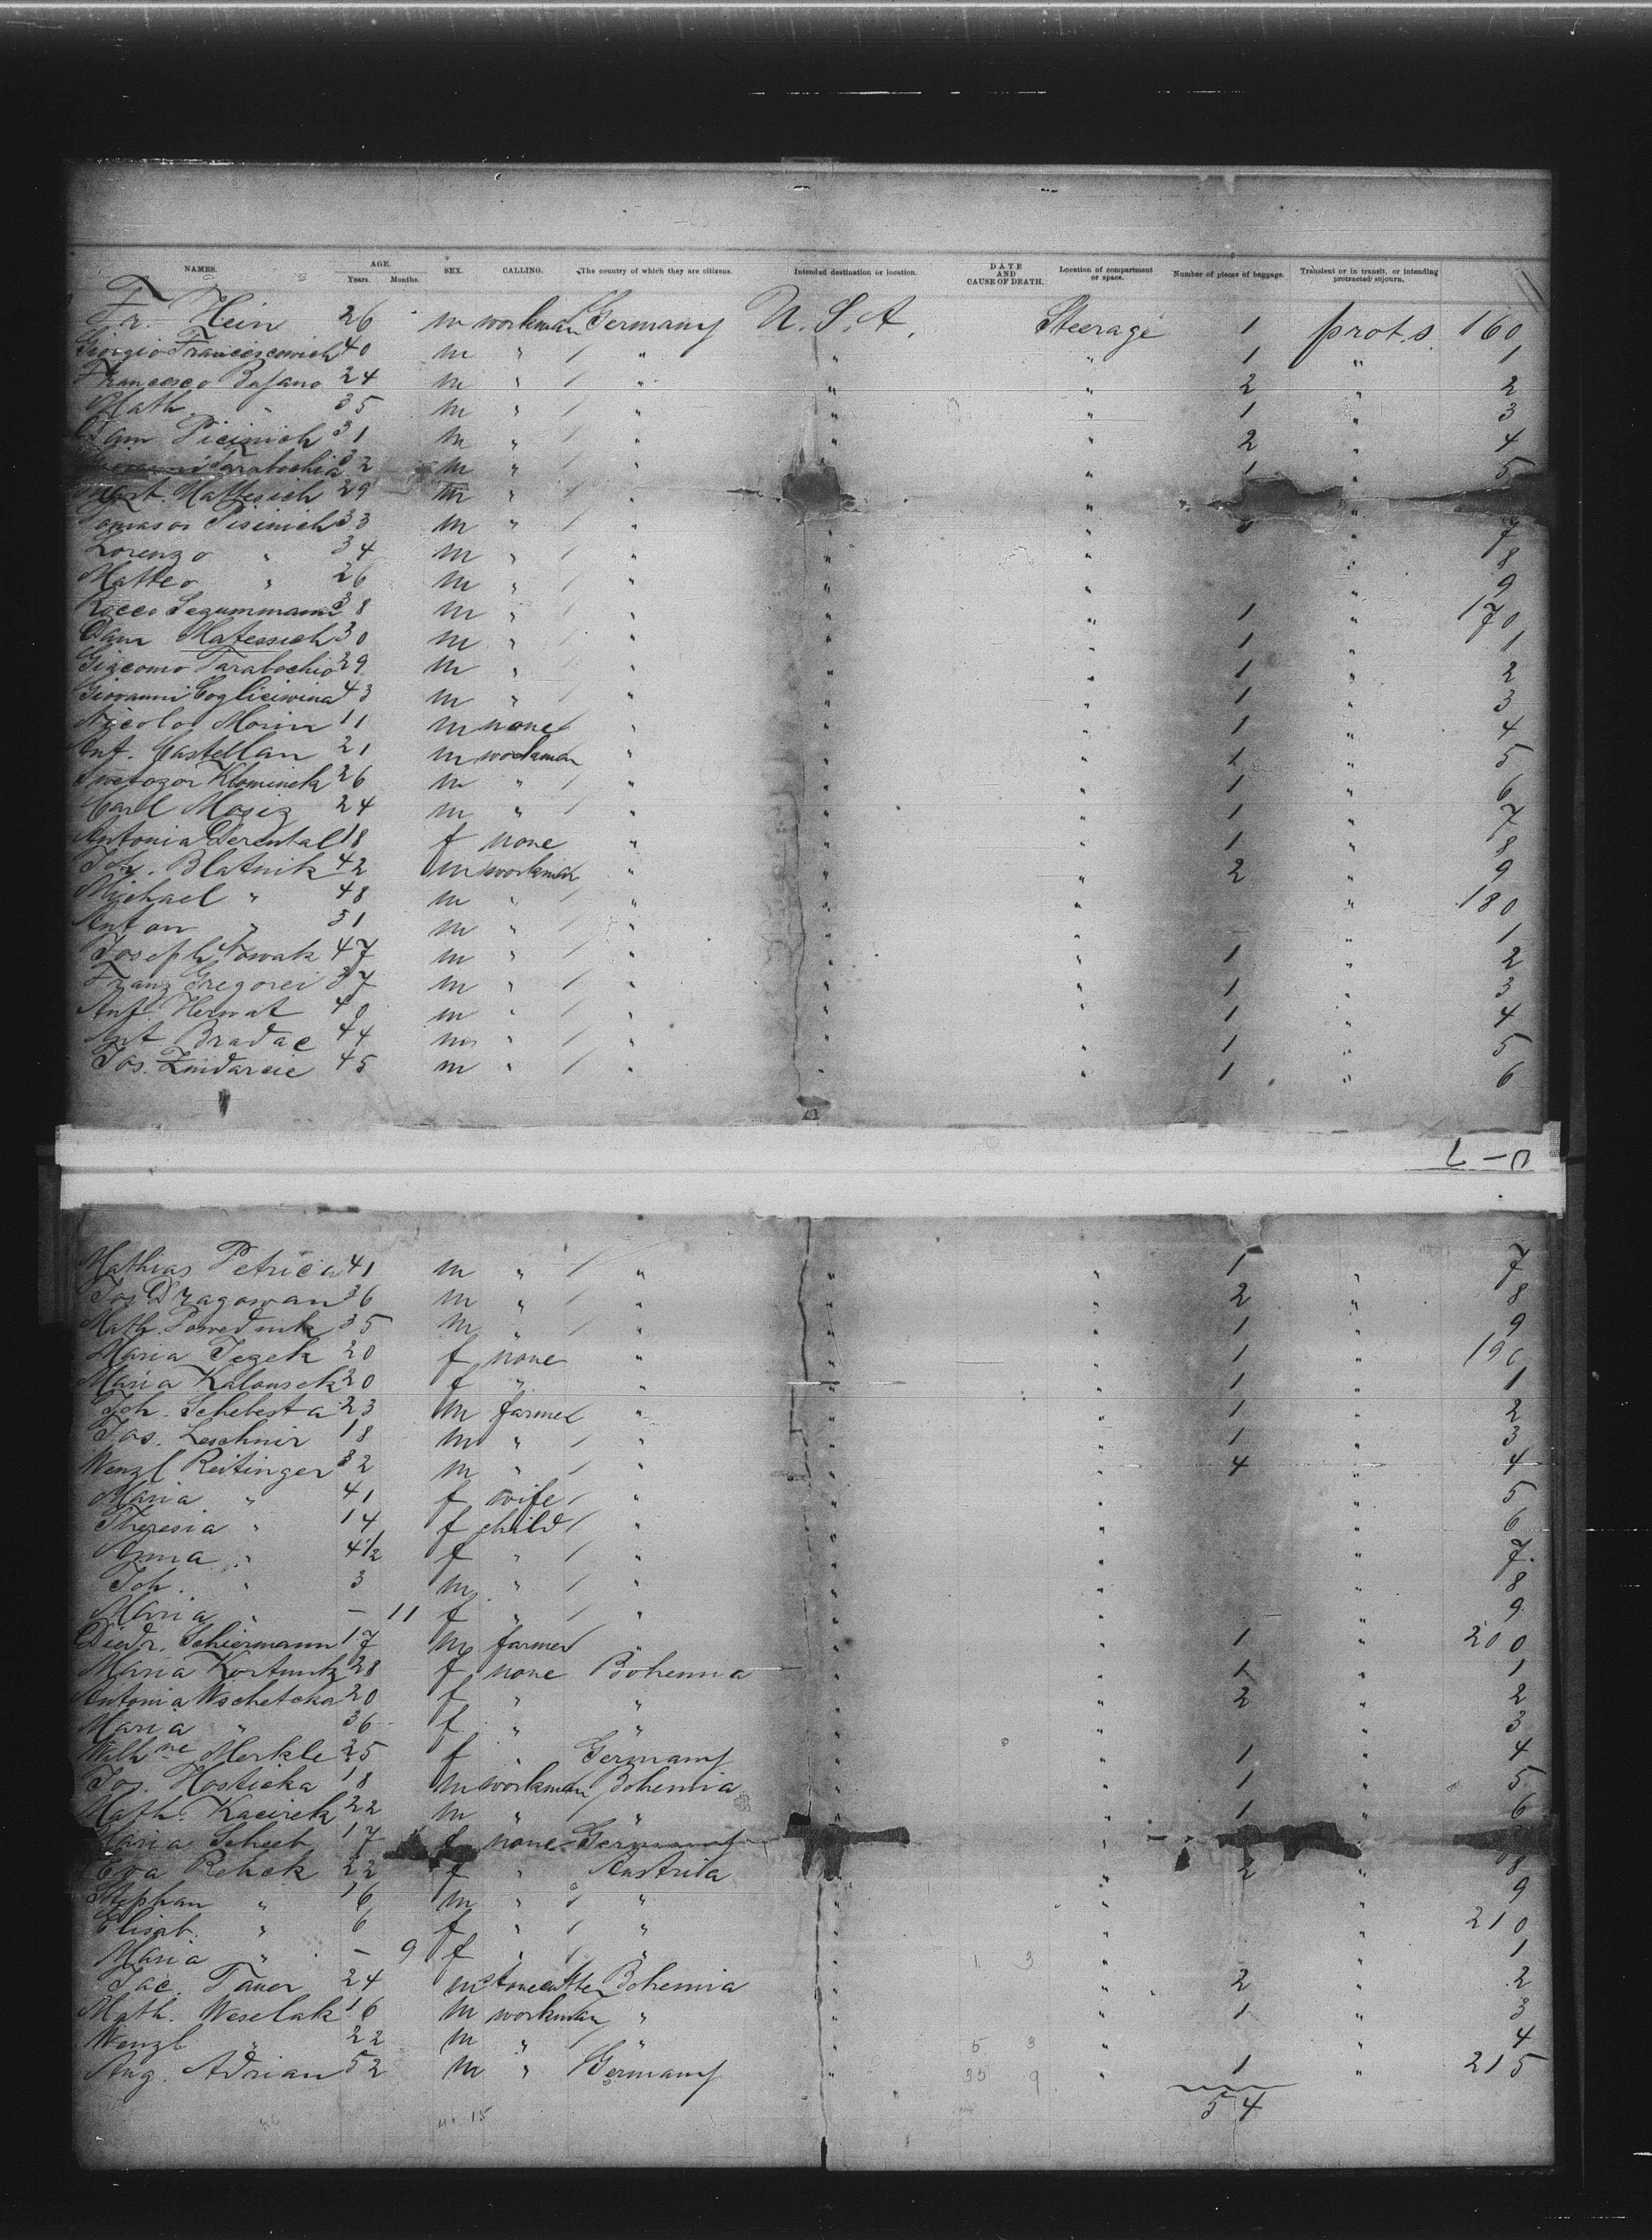 NAMES. AGE. Years. Months. SEX. CALLING. The country of which they are citizens. Intended destination or location. DATE AND CAUSE OF DEATH. Location of compartment or space. Number of pieces of baggage. Transient or in transit, or intending protracted sojourn.
Fr. Hein 26 m workman Germany U.S.A. Steerage 1 prot.s. 160
Giorgio Francescowich 40 m " / " " " 1 " 1
Francesco Busano 24 m " / " " " 2 " 2
Math. " 35 m " / " " " 1 " 3
Dom Picinich 31 m " / " " " 2 " 4
Tarabochia 32 m " / " " 1 " 5
Mart. Mattesich 29 m " / " " "
Tomaso Pisinich 33 m " / " " " " 7
Lorenzo " 34 m " / " " " " 8
Matteo " 26 m " / " " " " 9
Rocco 38 m " / " " " 1 " 170
Dom Matessich 30 m " / " " " 1 " 1
Giacomo Tarabochio 29 m " / " " " 1 " 2
Giovanni 43 m " / " " " 1 " 3
Nicolo Morin 11 m none " " " 1 " 4
Ant. Castellan 21 m workman " " " 1 " 5
Swetozor Klominek 26 m " / " " " 1 " 6
Carl Mosiz 24 m " / " " " 1 " 7
Antonia Derental 18 f none " " " 1 " 8
Joh. Blatnik 42 m workman " " " 2 " 9
Michael " 48 m " / " " " " 180
Anton " 31 m " / " " " " 1
Joseph Nowak 47 m " / " " " 1 " 2
Franz Gregorei 37 m " / " " " 1 " 3
Ant. Herwat 40 m " / " " " 1 " 4
Ant Bradac 44 m " / " " " 1 " 5
Jos. Zindarcic 45 m " / " " " 1 " 6
Mathias Petrica 41 m " / " " " 1 " 7
Jos Dragowan 36 m " / " " " 2 " 8
Math. Powednik 35 m " / " " " 1 " 9
Maria Jezek 20 f none " " " 1 " 190
Maria Kalousek 20 f " " " " 1 " 1
Joh. Schebesta 23 m farmer " " " 1 " 2
Jos. Leschnir 18 m " / " " " 1 " 3
Wenzl Reitinger 32 m " / " " " 4 " 4
Maria " 41 f wife / " " " " 5
Theresia " 14 f child / " " " " 6
Anna " 4 1/2 f " / " " " " 7
Joh. " 3 m " / " " " " 8
Maria " – 11 f " / " " " " 9
Diedr. Schiermann 17 m farmer " " " 1 " 200
Maria Kortunk 28 f none Bohemia " " 1 " 1
Antonia Wschetcka 20 f " " " " 2 " 2
Maria " 36 f " " " " " 3
Wilhne Merkle 25 f " Germany " " 1 " 4
Jos. Hosticka 18 m workman Bohemia " " 1 " 5
Math. Kacirek 22 m " " " " 1 " 6
Maria Scheeb 17 f none Germany "
Eva Rehak 22 f " Austria " " 2 " 8
Stephan " 16 m " / " " " " 9
Elisab. " 6 f " / " " " " 210
Maria " – 9 f " / " " 1 3 " " 1
Jac. Tauer 24 m stonecutter Bohemia " " 2 " 2
Math. Weselak 16 m workman " " " 1 " 3
Wenzl " 22 m " / " " 5 3 " " 4
Aug. Adrian 52 m " Germany " 35 9 " 1 " 215
54